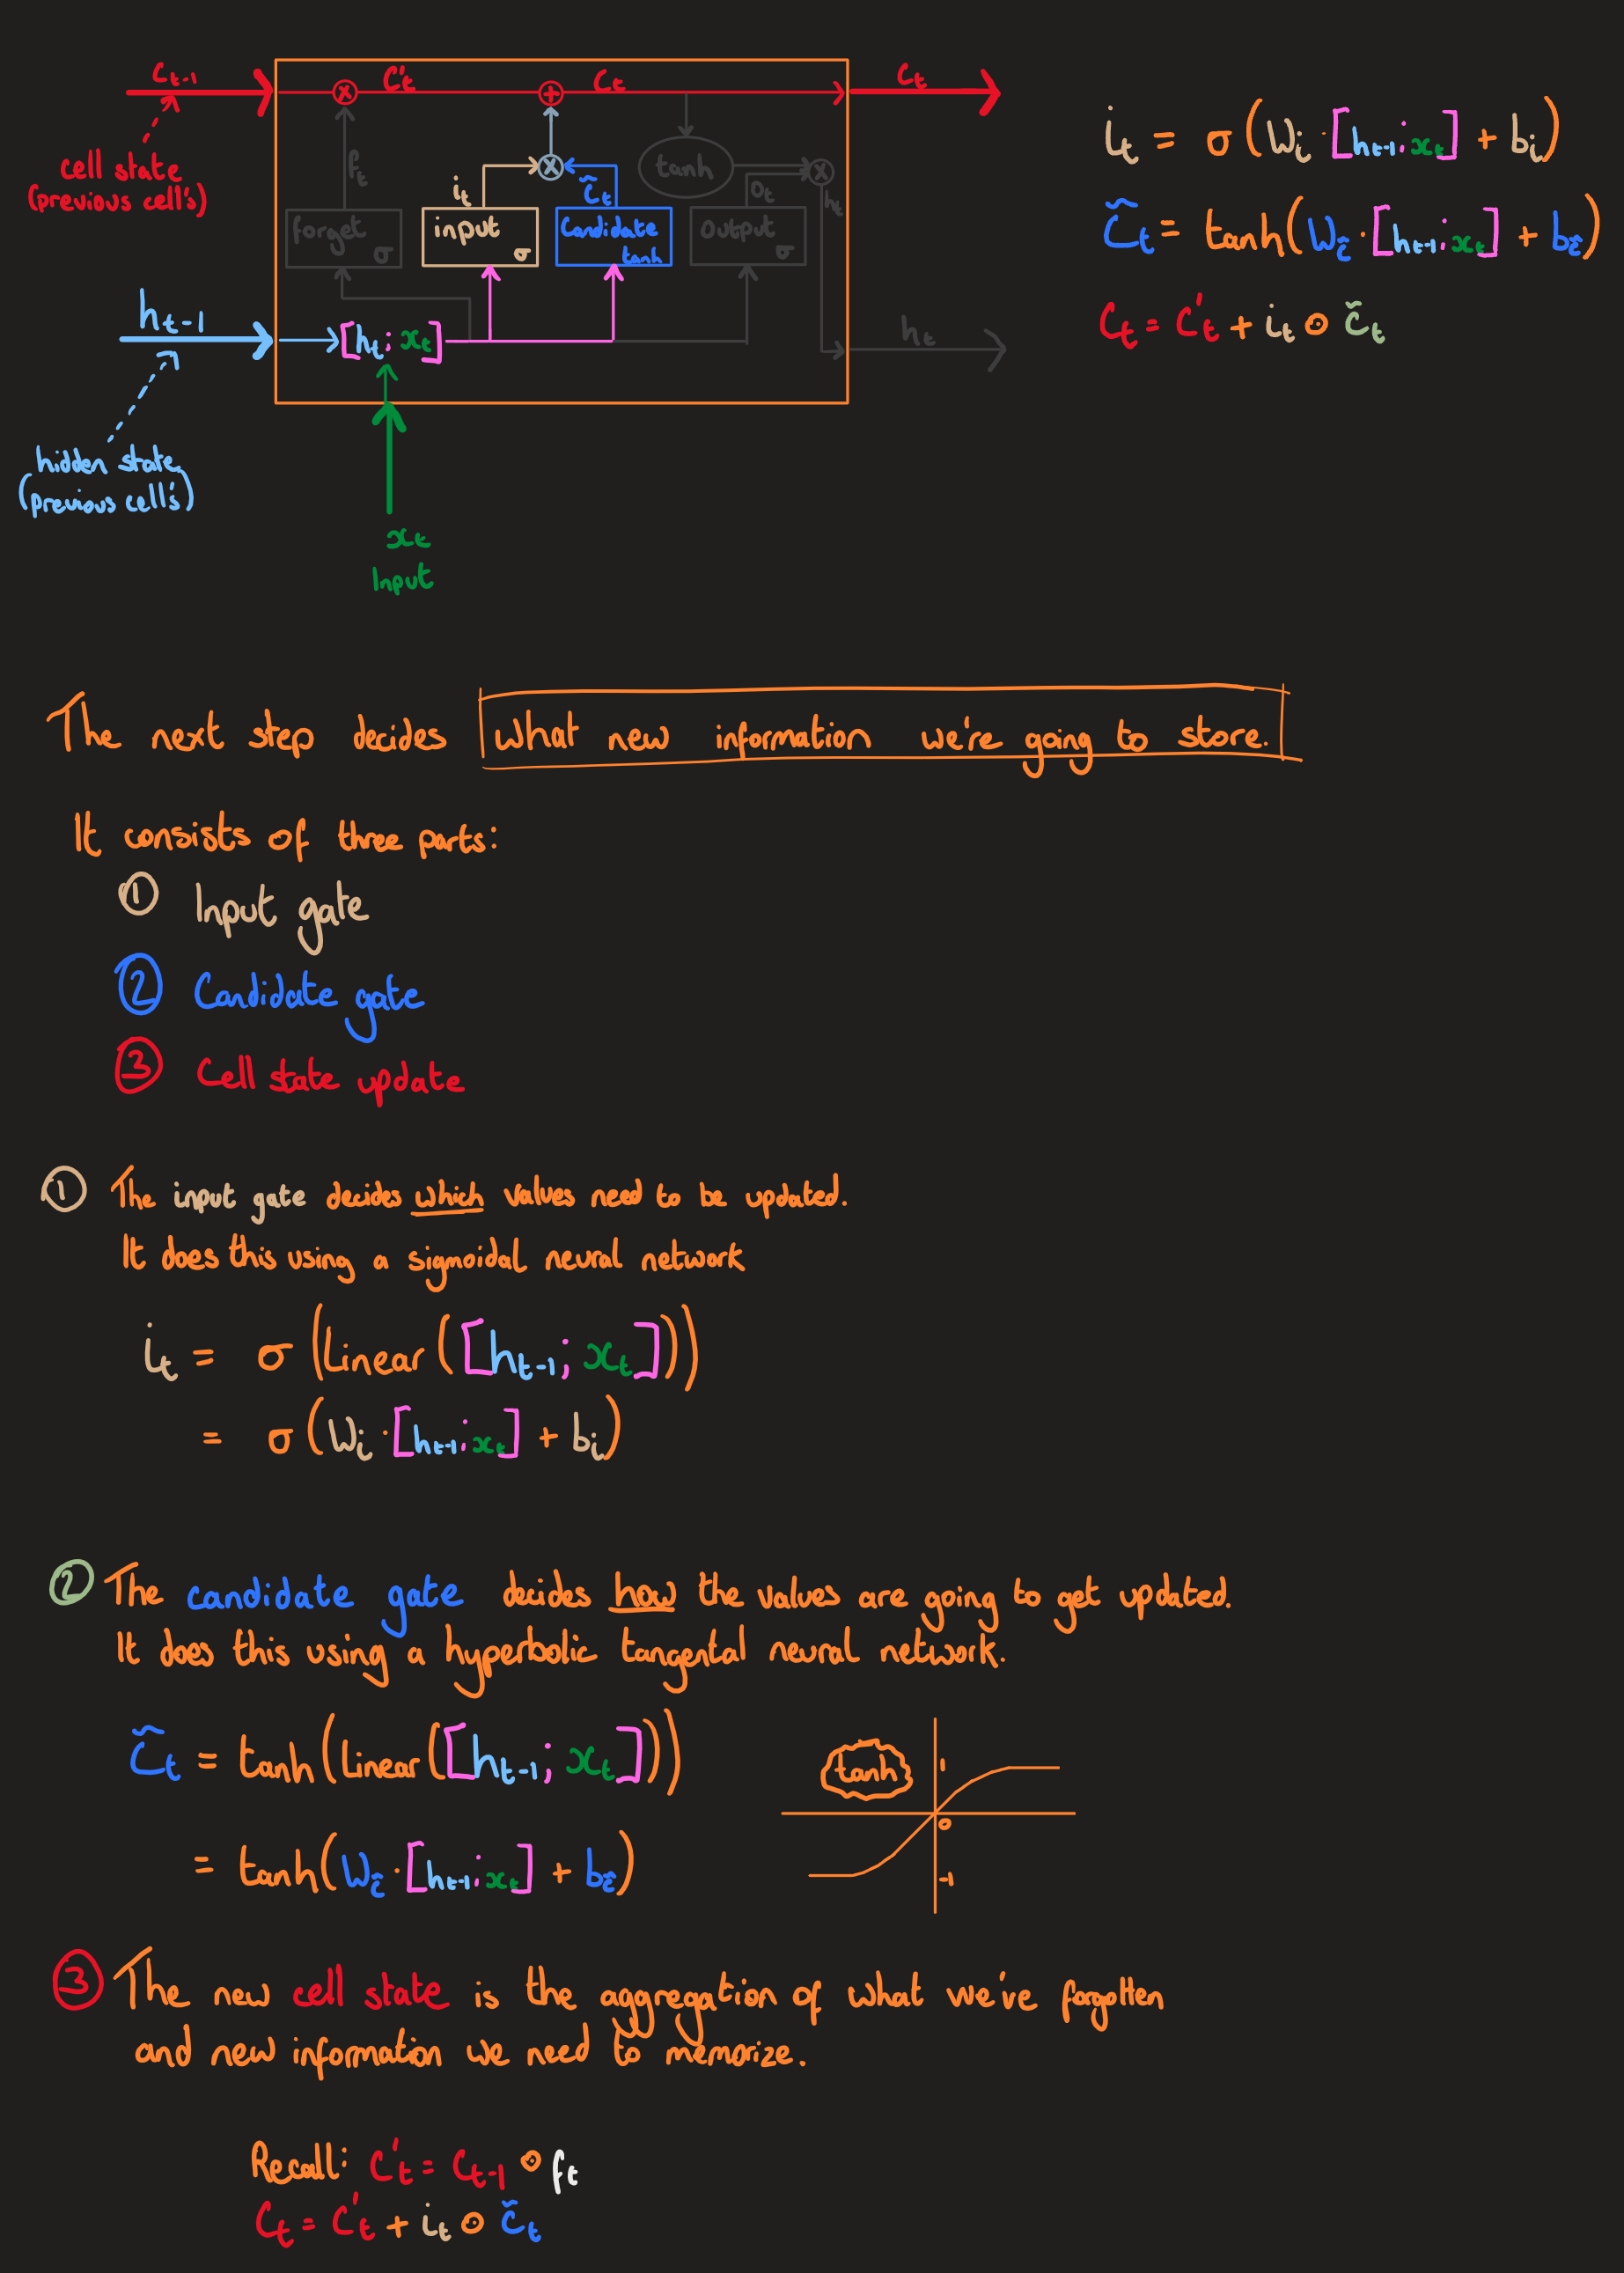 C_{t-1}
C'_t
C_t
C_t
cell state
(previous cell's)
f_t
i_t
C̃_t
tanh
o_t
h_t
forget σ
input σ
Candidate tanh
output σ
h_{t-1}
[h_t; x_t]
h_t
hidden state
(previous cell's)
x_t
Input
i_t = σ(W_i · [h_{t-1}; x_t] + b_i)
C̃_t = tanh(W_c̃ · [h_{t-1}; x_t] + b_c̃)
C_t = C'_t + i_t ⊙ c̃_t
The next step decides what new information we're going to store.
It consists of three parts:
① Input gate
② Candidate gate
③ Cell state update
① The input gate decides which values need to be updated.
It does this using a sigmoidal neural network
i_t = σ(Linear([h_{t-1}; x_t]))
= σ(W_i · [h_{t-1}; x_t] + b_i)
② The candidate gate decides how the values are going to get updated.
It does this using a hyperbolic tangental neural network.
C̃_t = tanh(Linear([h_{t-1}; x_t]))
= tanh(W_c̃ · [h_{t-1}; x_t] + b_c̃)
tanh
1
0
-1
③ The new cell state is the aggregation of what we've forgotten
and new information we need to memorize.
Recall: C'_t = C_{t-1} ⊙ f_t
C_t = C'_t + i_t ⊙ c̃_t